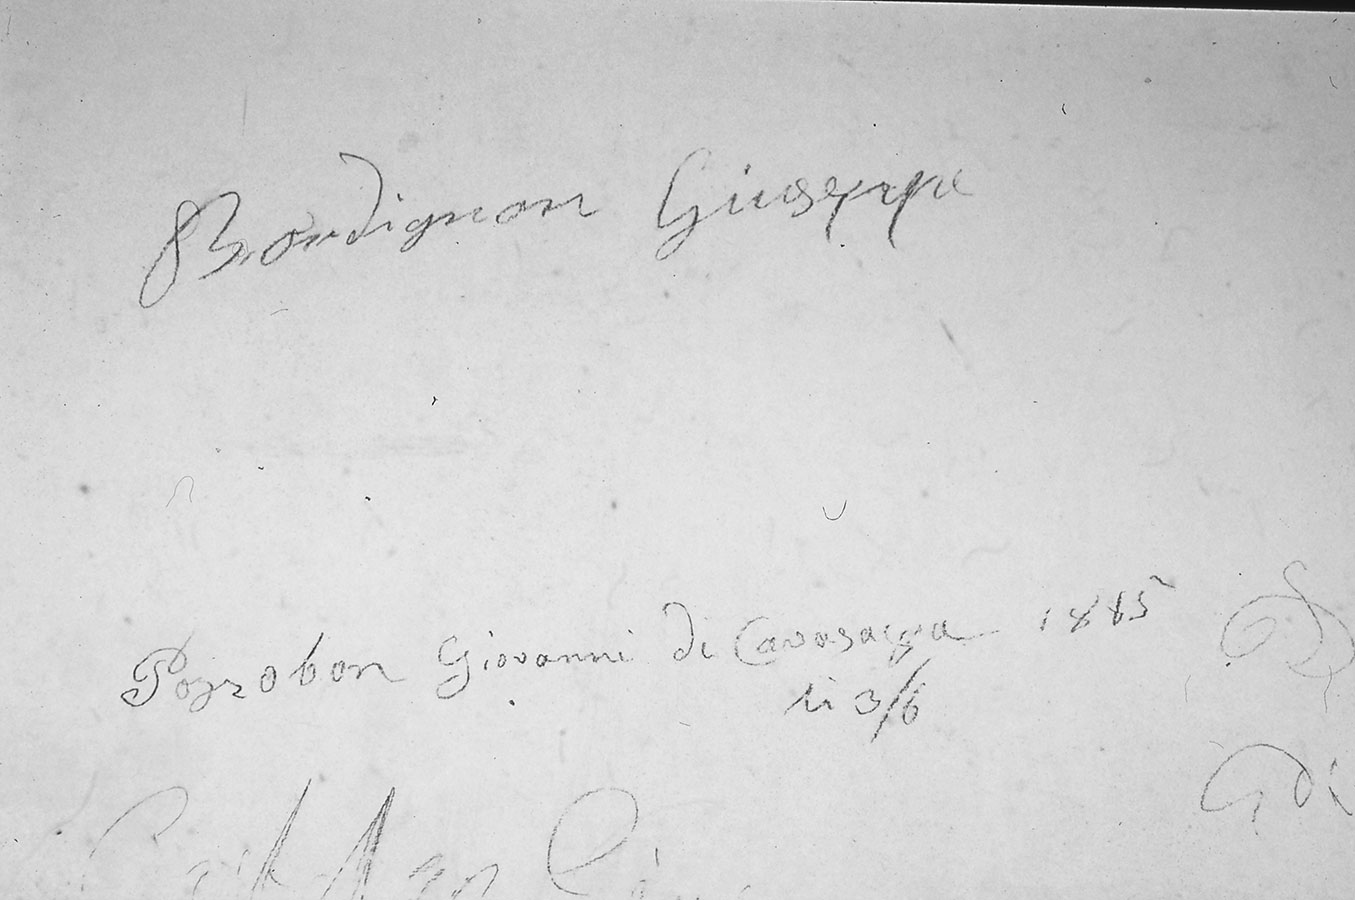 Bordignon Giuseppe
Pozzobon Giovanni di Cavasagra 1885
li 3/6